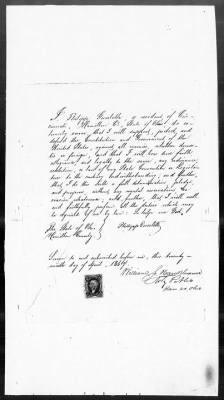 I Philipp Hurlebly, a resident of Cin-
cinnati, Hamilton Co, State of Ohio do so-
lemnly swear, that I will support, protect, and
defend the Constitution and Government of the
United States, against all enemies, whether domes-
tic or foreign, and that I will bear true faith,
allegiance, and loyalty to the same, any ordinance,
resolution, or law of any State Convention or Legisla-
ture to the contrary notwithstanding; and further,
that I do this with a full determination, pledge,
and purpose, without any mental reservation or
evasion whatsoever; and, further, that I will well
and faithfully perform all the duties which may
be required of me by law. So help me God,
The State of Ohio
Hamilton County
Philipp
Sworn to and subscribed before me, this twenty-
ninth day of April,
William
Notary Public
Ham. co, Ohio